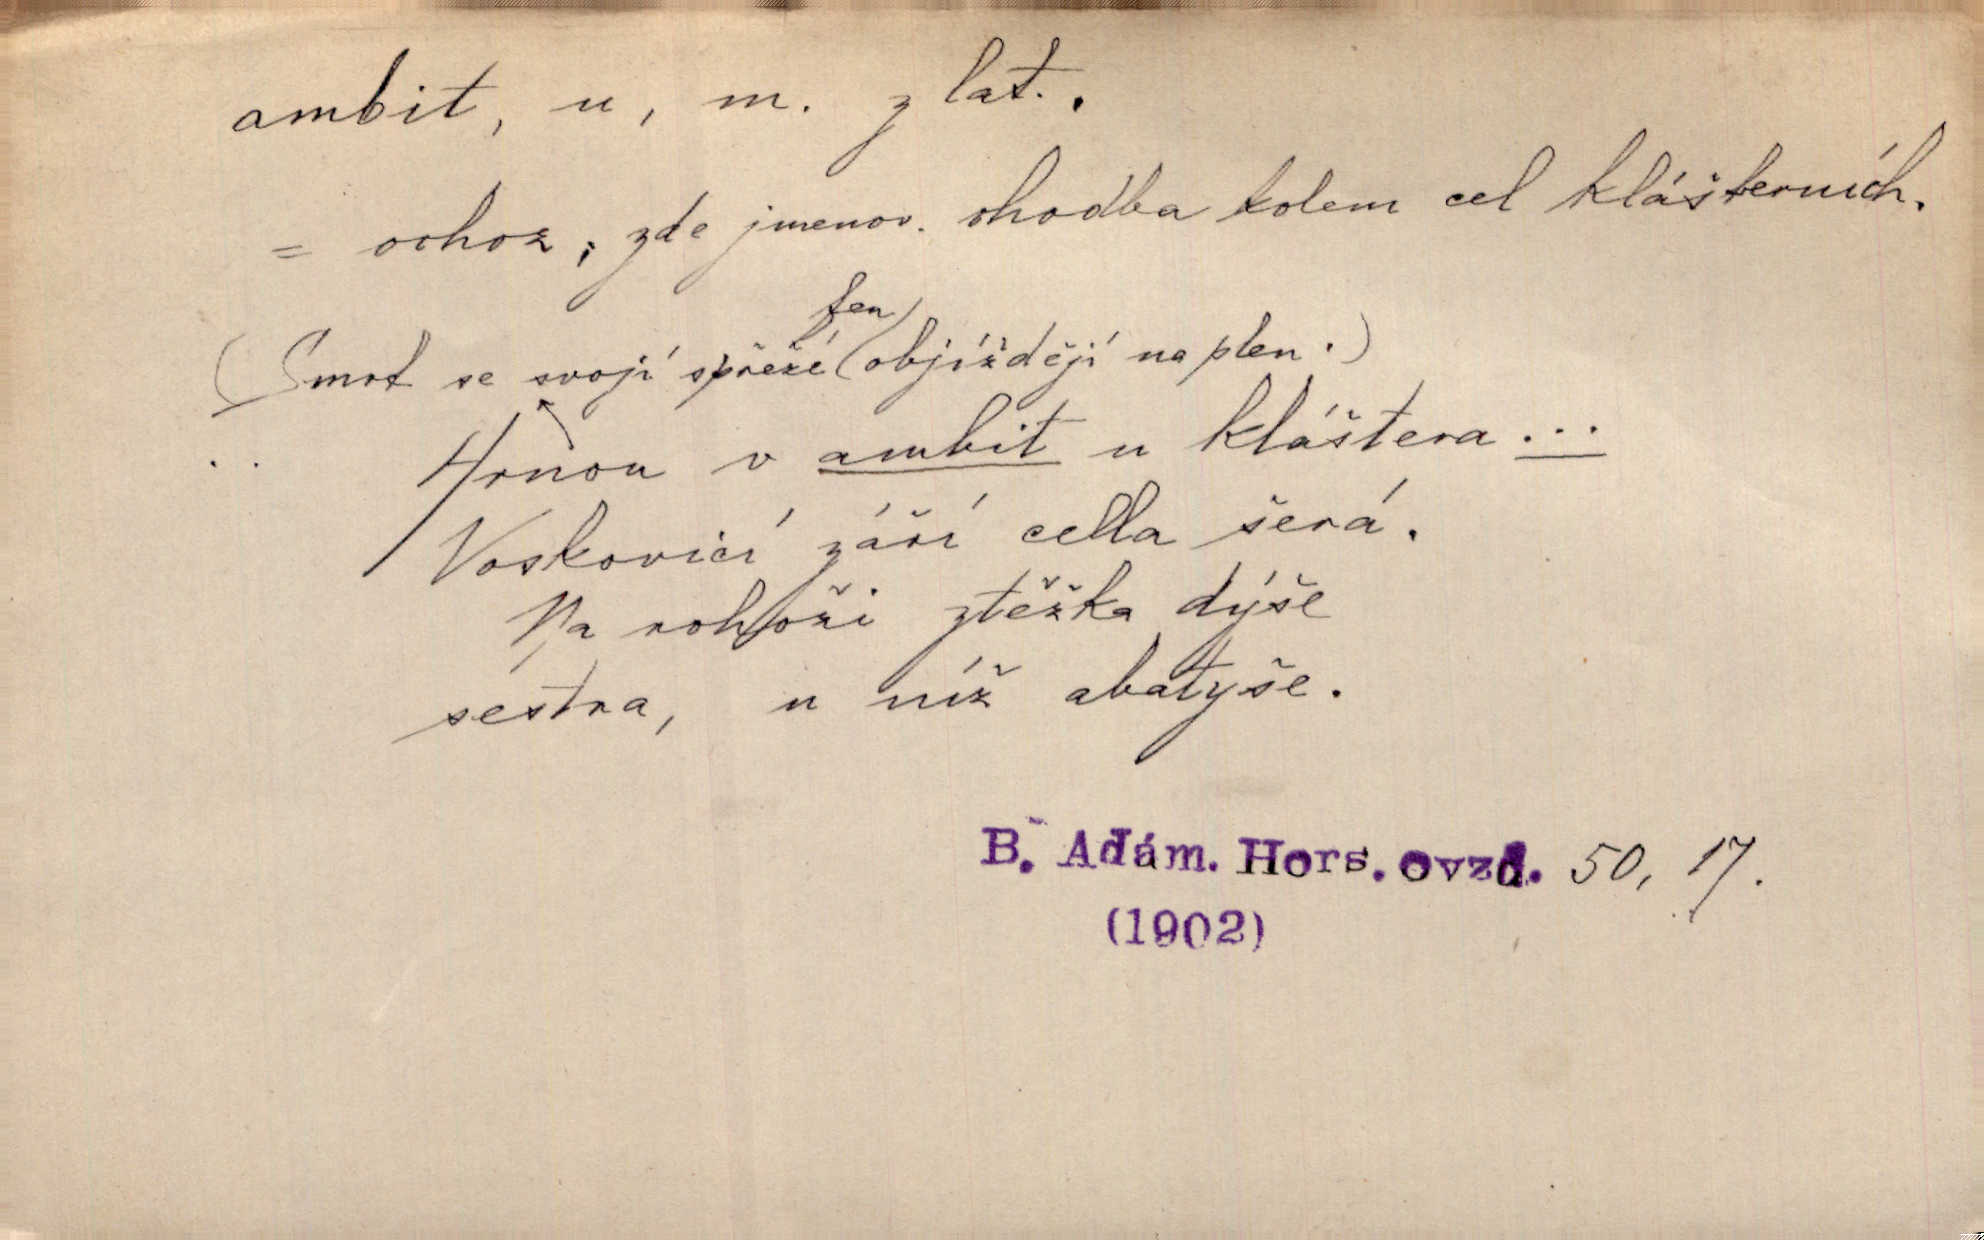 ambit, u, m. z lat..
= ochoz; zde jmenov. chodba kolem cel klášterních.
ten
(Smrt se svojí spřeží (objíždějí na plen.)
.. Hrnou v ambit u kláštera ...
Voskovicí září cella šerá.
Na rohoži ztěžka dýše
sestra, u níž abatyše.
B. Adám. Hors. ovzd. 50, 17.
(1902)